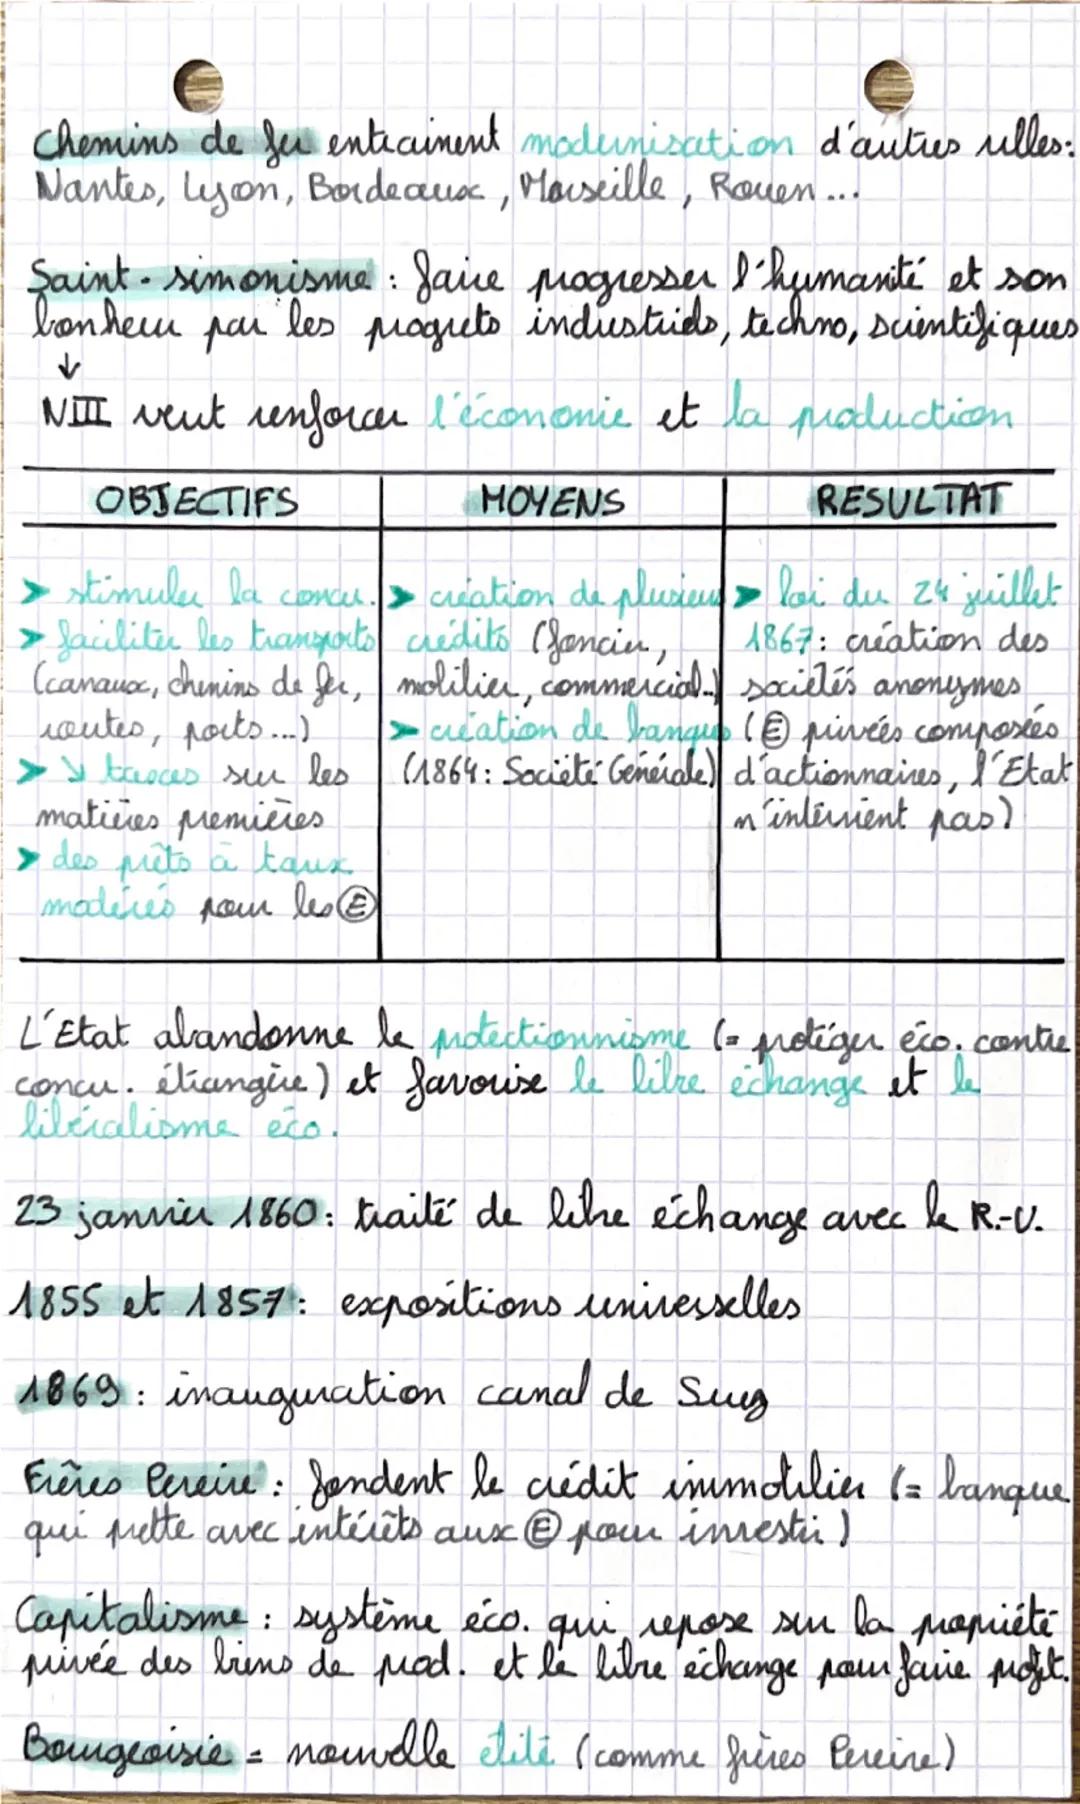 Chemins de fer entrainent modernisation d'autres villes:
Nantes, Lyon, Bordeaux, Marseille, Rouen...
Saint-simonisme : faire progresser l'humanité et son
bonheur par les progrets industriels, techno, scientifiques
↓
NIII veut renforcer l'économie et la production
OBJECTIFS
➤ stimuler la concu.
➤ faciliter les transports
(canaux, chemins de fer,
routes, ports...)
➤ ↘ taxes sur les
matières premières
➤ des prêts à taux
modérés pour les Ⓔ
MOYENS
➤ création de plusieurs
crédits (foncier,
mobilier, commercial..)
➤ création de banques
(1864: Société Générale)
RESULTAT
➤ loi du 24 juillet
1867: création des
sociétés anonymes
(Ⓔ privées composées
d'actionnaires, l'Etat
n'intervient pas)
L'Etat abandonne le protectionnisme (= protéger éco. contre
concu. étrangère) et favorise le libre échange et le
libéralisme éco.
23 janvier 1860: traité de libre échange avec le R.-U.
1855 et 1857: expositions universelles
1869: inauguration canal de Suez
Frères Pereire : fondent le crédit immobilier (= banque
qui prette avec intérêts aux Ⓔ pour investir)
Capitalisme : système éco. qui repose sur la propriété
privée des biens de prod. et le libre échange pour faire profit.
Bourgeoisie = nouvelle élite (comme frères Pereire)